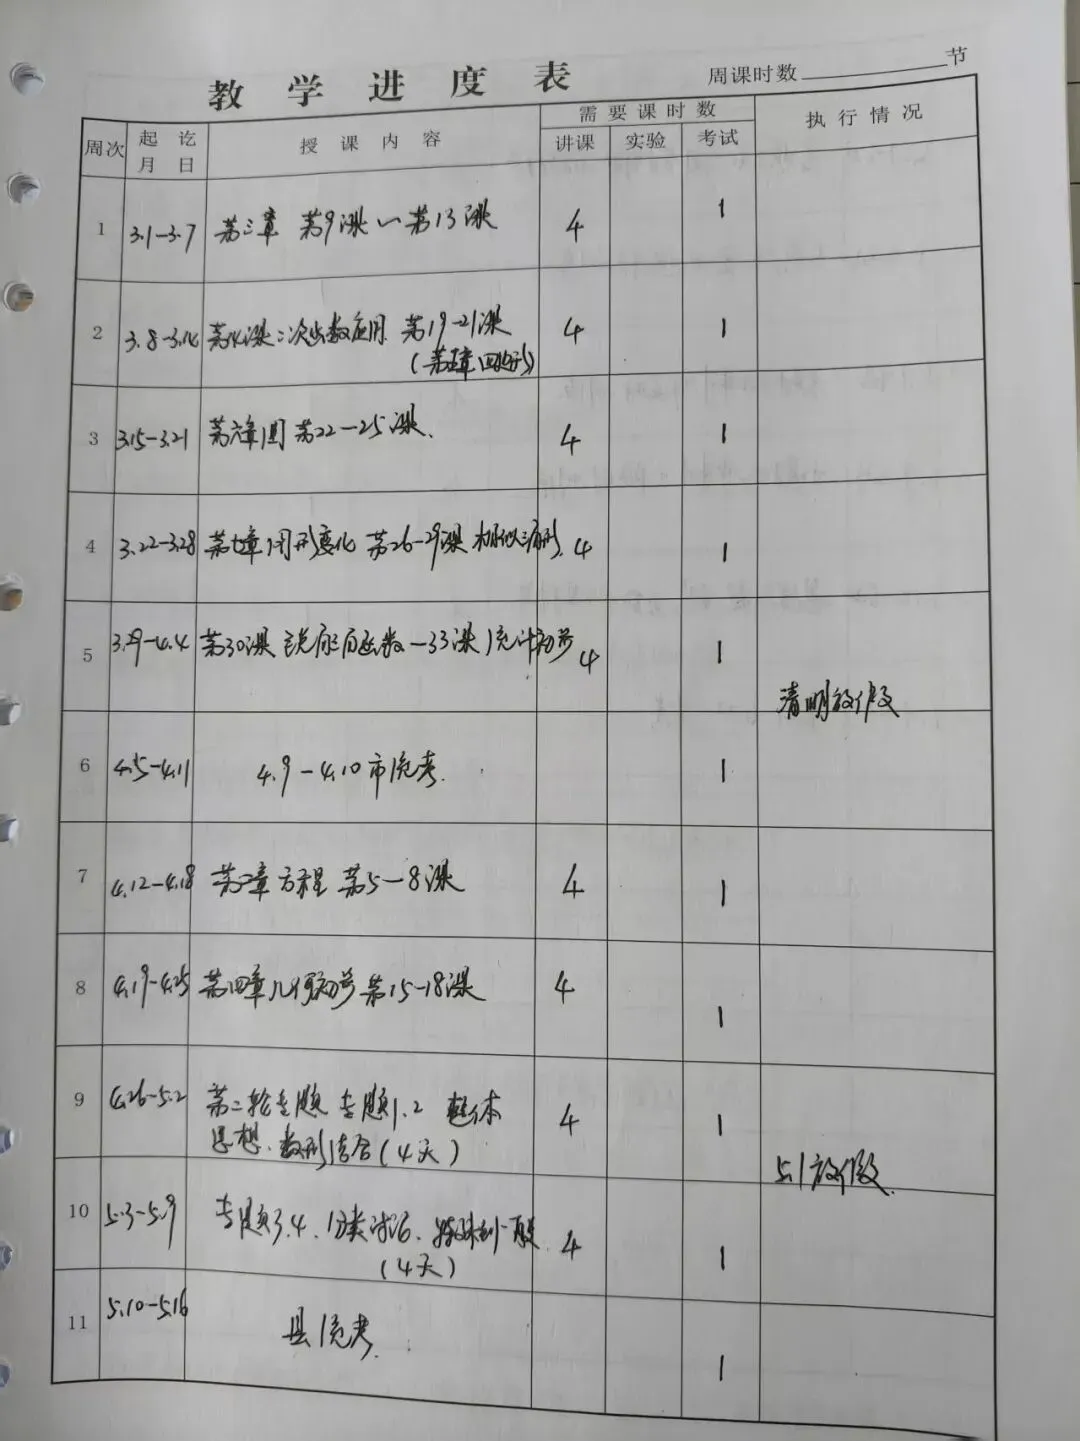 教学进度表
周课时数 节
周次 起讫月日 授课内容 需要课时数 执行情况
讲课 实验 考试
1 3.1-3.7 第三章 第9课~第13课 4 1
2 3.8-3.14 第14课二次函数应用 第19-21课 4 1
(第五章四边形)
3 3.15-3.21 第六章圆 第22-25课. 4 1
4 3.22-3.28 第七章图形变化 第26-29课 相似三角形 4 1
5 3.29-4.4 第30课 锐角三角函数-33课 统计初步 4 1 清明放假
6 4.5-4.11 4.9-4.10市统考. 1
7 4.12-4.18 第二章方程 第5-8课 4 1
8 4.19-4.25 第四章几何初步 第15-18课 4 1
9 4.26-5.2 第二轮专题 专题1.2 整体 4 1
思想、数形结合(4天) 5.1放假.
10 5.3-5.9 专题3.4、分类讨论、特殊到一般 4 1
(4天)
11 5.10-5.16 县统考. 1